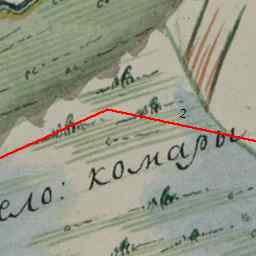 2
ело: комары